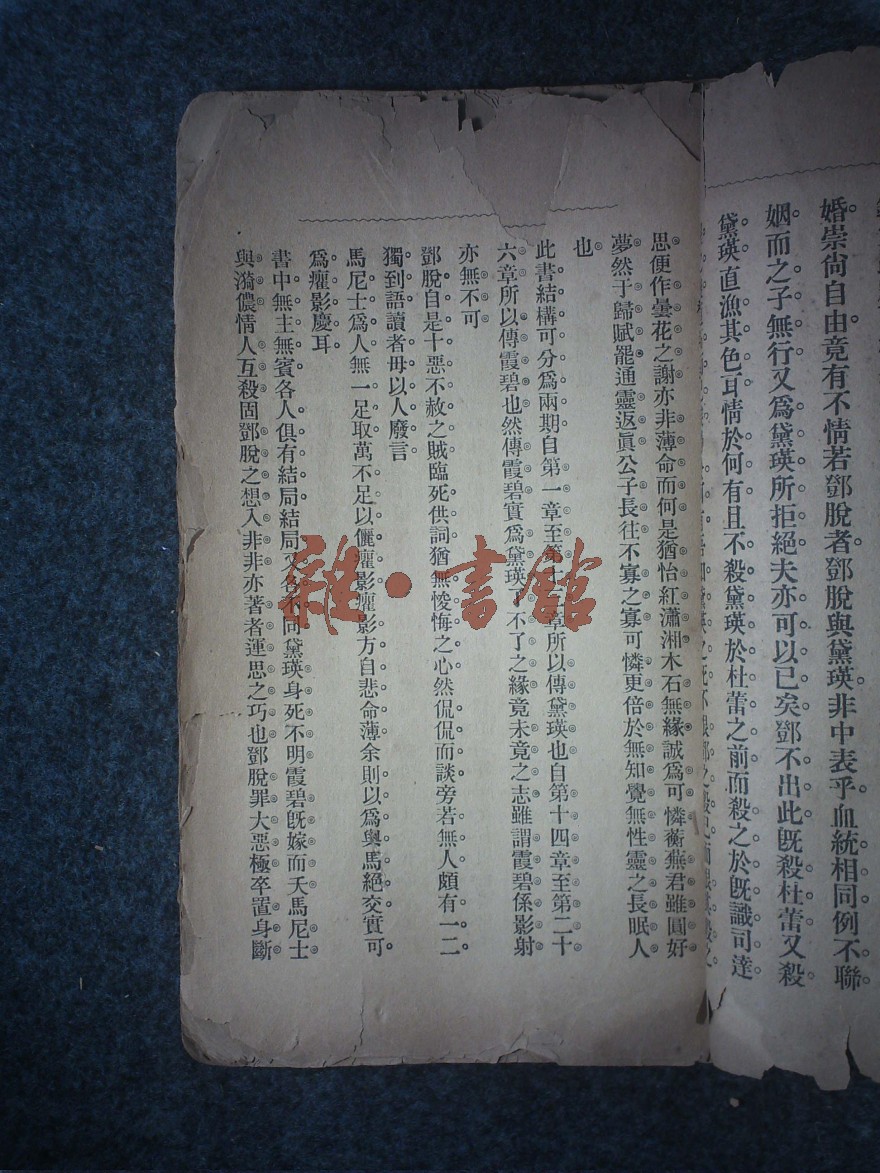 婚崇尙自由竟有不情若鄧脫者鄧脫與黛瑛非中表乎血統相同例不聯
姻而之子無行又爲黛瑛所拒絕夫亦可以已矣鄧不出此旣殺杜蕾又殺
黛瑛直漁其色耳情於何有且不殺黛瑛於杜蕾之前而殺之於旣識司達
思便作曇花之謝亦非薄命而何是猶怡紅瀟湘木石無緣誠爲可憐蘅蕪君雖圓好
夢然于歸賦罷通靈返眞公子長往不寡之寡可憐更倍於無知覺無性靈之長眠人
也
此書結構可分爲兩期自第一章至第十 章所以傳黛瑛也自第十四章至第二十
六章所以傳霞碧也然傳霞碧實爲黛瑛了不了之緣竟未竟之志雖謂霞碧係影射
亦無不可
鄧脫自是十惡不赦之賊臨死供詞猶無悛悔之心然侃侃而談旁若無人頗有一二
獨到語讀者毋以人廢言
馬尼士爲人無一足取萬不足以儷癯影癯影方自悲命薄余則以爲與馬絕交實可
爲癯影慶耳
書中無主無賓各人俱有結局結局又各不同黛瑛身死不明霞碧旣嫁而夭馬尼士
與漪儂情人互殺固鄧脫之想入非非亦著者運思之巧也鄧脫罪大惡極卒置身斷
雜·書館